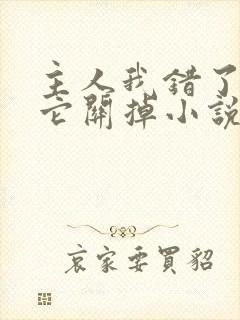 主人我错了
它關掉小說
哀家要買貂